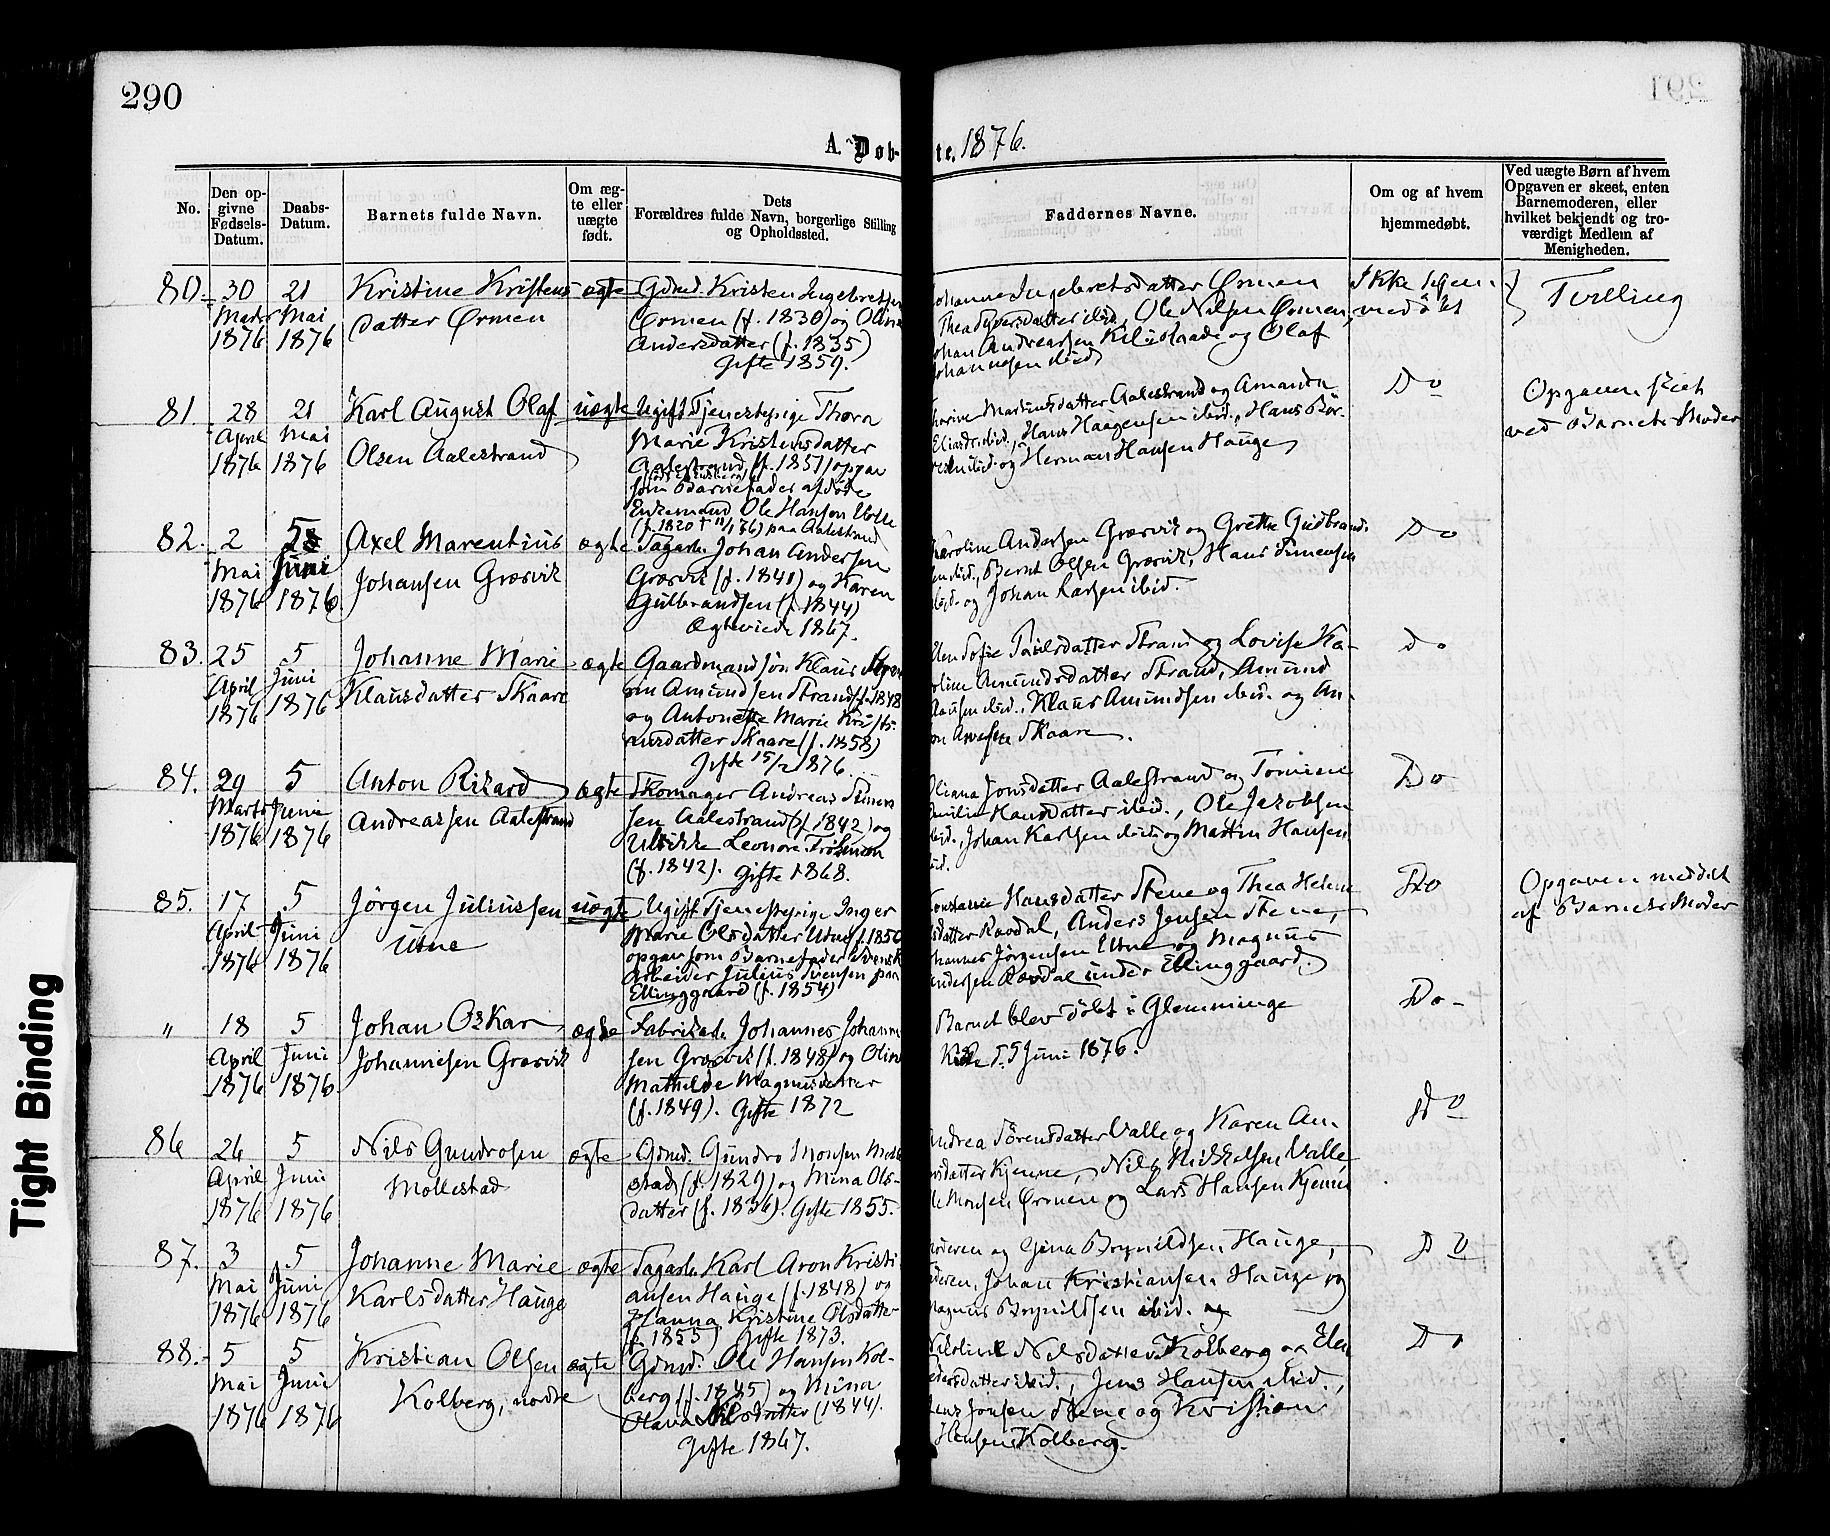 290
A. Døb-
te. 1876.
No.
Den op-
givne
Fødsels-
Datum.
Daabs-
Datum.
Barnets fulde Navn.
Om æg-
te eller
uægte
født.
Dets
Forældres fulde Navn, borgerlige Stilling
og Opholdssted.
Faddernes Navne.
Om og af hvem
hjemmedøbt.
Ved uægte Børn af hvem
Opgaven er skeet, enten
Barnemoderen, eller
hvilket bekjendt og tro-
værdigt Medlem af
Menigheden.
80.
30
Marts
1876
21
Mai
1876
Kristine Kristens
datter Ørmen
ægte
Gdmd. Kristen Ingebretsen
Ørmen (f. 1830) og Olina
Andersdatter (f. 1835)
Gifte 1859.
Johanne Ingebretsdatter Ørmen
Thea ibid., Ole Nilsen Ørmen,
Johan Andreassen og Olaf
Johannesen ibid
Ikke hjem-
medøbt
Tvilling
81.
28
April
1876
21
Mai
1876
Karl August Olaf
Olsen Aalestrand
uægte
Ugift Tjenestepige Thora
Marie Kristensdatter
Aalestrand (f. 1851) opgav
som Barnefader afdøde
Enkemand Ole Hansen
(f. 1820 † /76) paa Aalestrand
Martinsdatter Aalestrand og Amanda
ibid., Hans Haagensen ibid., Hans Bør-
ibid. og Herman Hansen Hauge
Do
Opgaven skeet
ved Barnets Moder
82.
2
Mai
1876
5
Juni
1876
Axel Marentius
Johansen Græsvik
ægte
Sagarb. Johan Andersen
Græsvik (f. 1841) og Karen
Gulbrandsen (f. 1844)
Ægteviede 1867.
Karoline Andersen Græsvik og Grethe Gudbrand-
sen ibid., Bernt Olsen Græsvik, Hans Simensen
ibid. og Johan Larsen ibid.
Do
83.
25
April
1876
5
Juni
1876
Johanne Marie
Klausdatter Skaare
ægte
Gaardmandssøn Klaus
Amundsen Strand (f. 1848
og Antonette Marie Kristi-
ansdatter Skaare (f. 1858)
Gifte 15/2 1876.
Ellen Sofie Paulsdatter Strand og Lovise Ka-
roline Amundsdatter Strand, Amund
Klausen ibid., Klaus Amundsen ibid. og An-
ton Skaare.
Do
84.
29
Marts
1876
5
Juni
1876
Anton Rikard
Andreassen Aalestrand
ægte
Skomager Andreas Simen
sen Aalestrand (f. 1842) og
Ulrikke Leonore
(f. 1842). Gifte 1868.
Oliana Jonsdatter Aalestrand og Tomine
Emilie Hansdatter ibid., Ole Jakobsen
ibid., Johan Karlsen ibid og Martin Hansen
ibid.
Do
85.
17
April
1876
5
Juni
1876
Jörgen Juliussen
Utne
uægte
Ugift Tjenestepige Inger
Marie Olsdatter Utne f. 1850
opgav som Barnefader Svensk
Arbeider Julius Svensen paa
Ellinggaard (f. 1854)
Konstanse Hansdatter Stene og Thea Helene
datter Ravdal, Anders Jensen Stene,
Johannes Jörgensen Utne og Magnus
Andersen Ravdal under Ellinggaard.
Do
Opgaven meddelt
af Barnets Moder
"
18
April
1876
5
Juni
1876
Johan Oskar
Johannesen Græsvik
ægte
Fabrikarb. Johannes Johanne
sen Græsvik (f. 1848) og Oline
Mathilde Magnusdatter
(f. 1849). Gifte 1872
Barnet blev døbt i Glemminge
Kirke d. 5 Juni 1876.
Do-
86
26
April
1876
5
Juni
1876
Nils Gundrosen
Mollestad
ægte
Gdmd. Gundro Monsen Molle
stad (f. 1829) og Mina Ols-
datter (f. 1836). Gifte 1855.
Andrea Sörensdatter Valle og Karen An-
dersdatter Kjenne, Nils Mikkelsen Valle
Ole Monsen Ørmen og Lars Hansen Kjenne
Do
87.
3
Mai
1876
5
Juni
1876
Johanne Marie
Karlsdatter Hauge
ægte
Sagarb. Karl Aron Kristi
ansen Hauge (f. 1848) og
Hanna Kristine Olsdatter
(f. 1855) Gifte 1873.
Moderen og Gina Brynildsen Hauge,
Faderen, Johan Kristiansen Hauge og
Magnus Brynildsen ibid.
Do
88.
5
Mai
1876
5
Juni
1876
Kristian Olsen
Kolberg, nordre
ægte
Gdmd. Ole Hansen Kol-
berg (f. 1845) og Mina
Olava Nilsdatter (1844).
Gifte 1867.
Nikoline Nilsdatter Kolberg og Elen
Pedersdatter ibid., Jens Hansen ibid.,
Jens Jonsen Stene og Kristian
Hansen Kolberg.
Do
Tight Binding